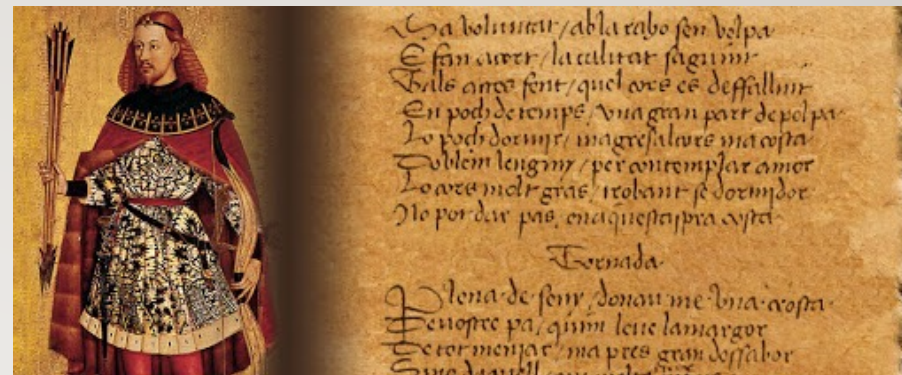 Sa voluntat / ab la raho sen volpa
E fan acort / la calitat saguint
Tals actes fent / quel cors es deffallint
En poch de temps / vna gran part de polpa
Lo poch dormir / magresa al cors macosta
Doblem lenginy / per contemplar amor
Lo cors molt gras / trobant se dormidor
No pot dar pas, en aquesta spra costa
Tornada
Plena de seny / donau me vna crosta
De vostre pa / quim leue lamargor
De tot meniar / ma pres gran dessabor
Sino daquell